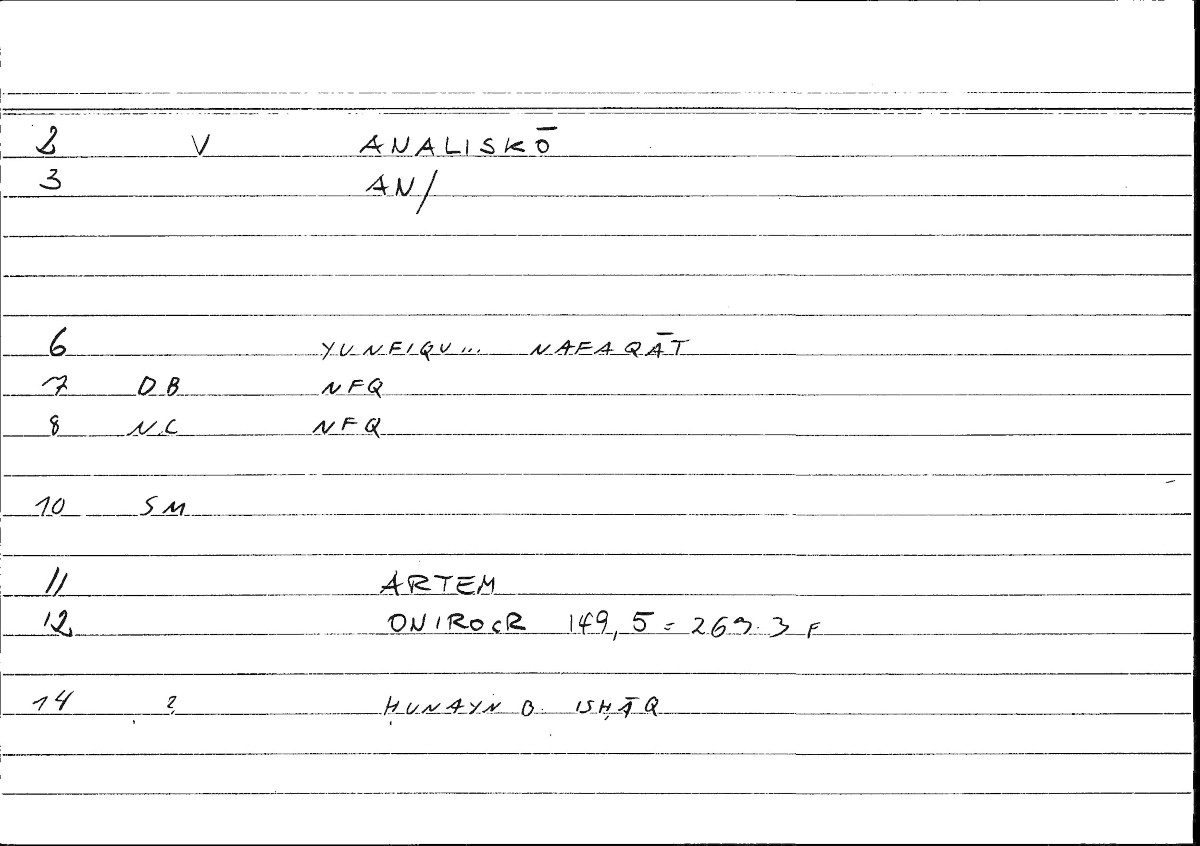 2 V ANALISKŌ
3 AN/
6 YUNFIQU... NAFAQĀT
7 DB NFQ
8 NC NFQ
10 SM
11 ARTEM
12 ONIROCR 149,5 = 269.3 F
14 ? ḤUNAYN B. ISḤĀQ